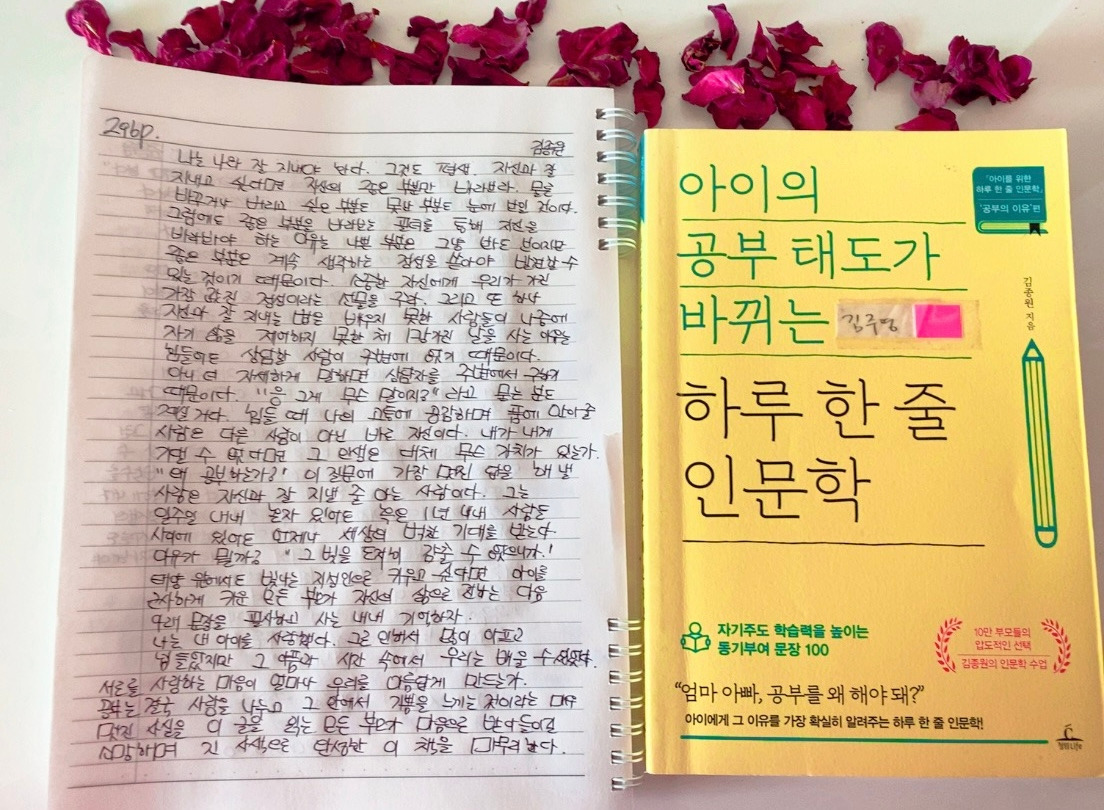 296p.
김종원
나는 나와 잘 지내야 한다. 그것도 평생. 자신과 잘
지내고 싶다면 자신의 좋은 부분만 바라보라. 물론
바꾸거나 버리고 싶은 부분도 못난 부분도 눈에 보일 것이다.
그럼에도 좋은 부분을 바라보는 관점을 통해 자신을
바라봐야 하는 이유는 나쁜 부분은 그냥 봐도 보이지만
좋은 부분은 계속 생각하는 정성을 쏟아야 발견할 수
있는 것이기 때문이다. 소중한 자신에게 우리가 가진
가장 멋진 정성이라는 선물을 주자. 그리고 또 하나
자신과 잘 지내는 법을 배우지 못한 사람들이 나중에
자기 삶을 제어하지 못한 채 망가진 날을 사는 이유는
힘들어도 상담할 사람이 주변에 없기 때문이다.
아니 더 자세하게 말하면 상담자를 주변에서 구하기
때문이다. "응 그게 무슨 말이지?" 라고 묻는 분도
계실 거다. 힘들 때 나의 고통에 공감하며 품에 안아줄
사람은 다른 사람이 아닌 바로 자신이다. 내가 내게
기댈 수 없다면 그 인생은 대체 무슨 가치가 있는가.
"왜 공부하는가?" 이 질문에 가장 멋진 답을 해 낼
사람은 자신과 잘 지낼 줄 아는 사람이다. 그는
일주일 내내 혼자 있어도 혹은 1년 내내 사람들
사이에 있어도 언제나 세상의 뜨거운 기대를 받는다.
이유가 뭘까? "그 빛을 도저히 감출 수 없으니까."
태양 위에서도 빛나는 지성인으로 키우고 싶다면 아이를
근사하게 키운 모든 부모가 자신의 삶으로 전하는 다음
아래 문장을 필사하고 사는 내내 기억하자.
나는 내 아이를 사랑했다. 그로 인해서 많이 아프고
힘들었지만 그 아픔과 시간 속에서 우리는 배울 수 있었다.
서로를 사랑하는 마음이 얼마나 우리를 아름답게 만드는가.
공부는 결국 사랑을 나누고 그 안에서 기쁨을 느끼는 것이라는 매우
멋진 사실을 이 글을 읽는 모든 부모가 마음으로 받아들이길
소망하며 긴 사색으로 완성한 이 책을 마무리한다.
아이의
공부 태도가
바뀌는
김주영
하루 한 줄
인문학
「아이를 위한
하루 한 줄 인문학」
'공부의 이유'편
김종원 지음
자기주도 학습력을 높이는
동기부여 문장 100
10만 부모들의
압도적인 선택
김종원의 인문학 수업
"엄마 아빠, 공부를 왜 해야 돼?"
아이에게 그 이유를 가장 확실히 알려주는 하루 한 줄 인문학!
청림Life